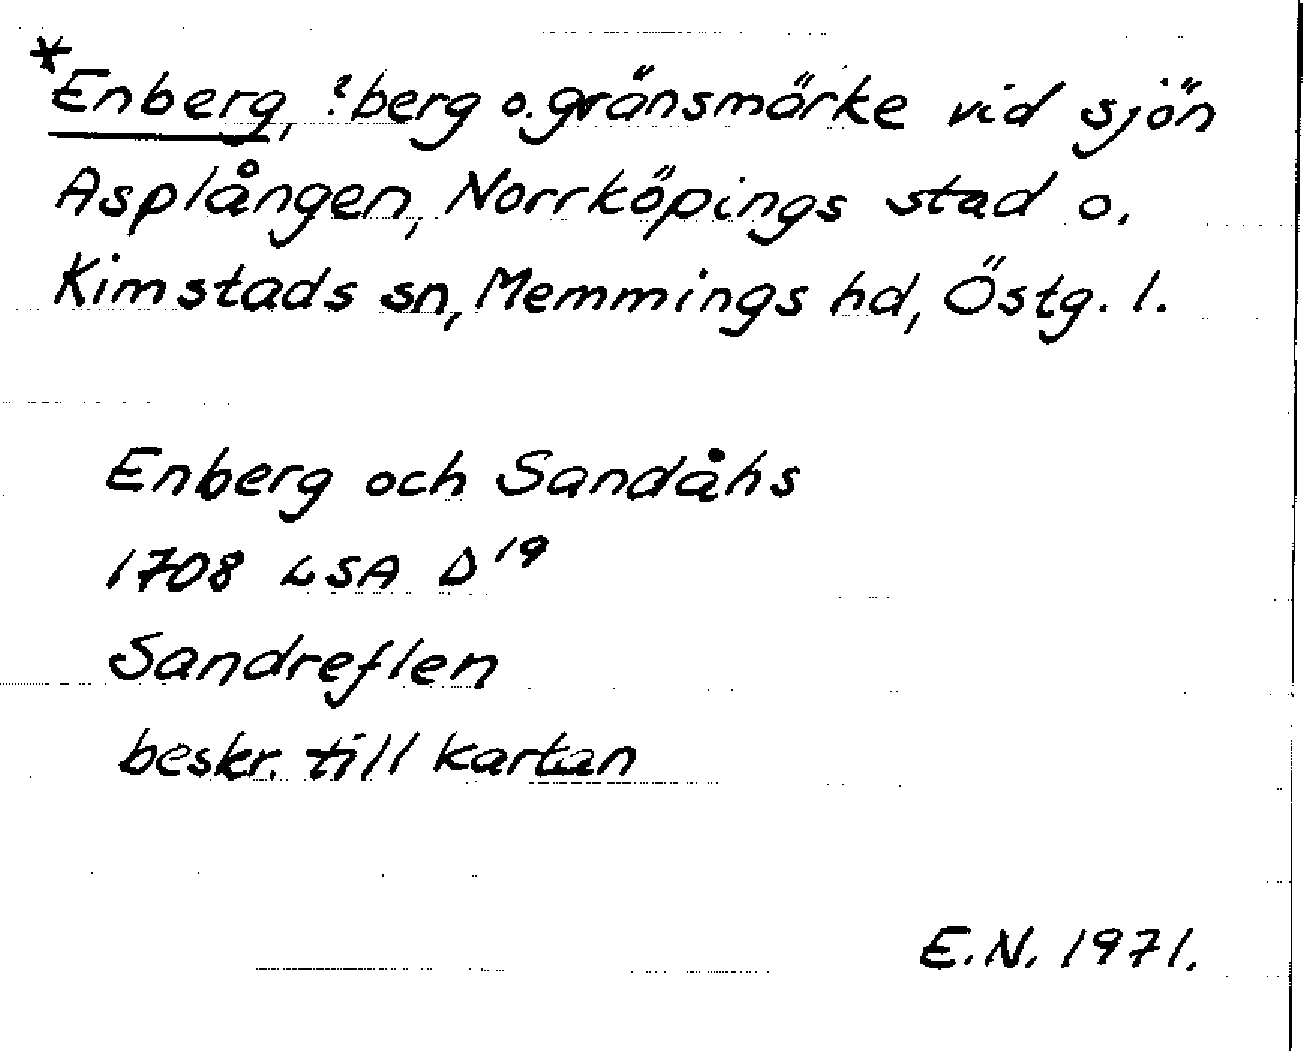 *Enberg, ?berg o. gränsmärke vid sjön
Asplången, Norrköpings stad o.
Kimstads sn, Memmings hd, Östg. l.
Enberg och Sandåhs
1708 LSA D19
Sandreflen
beskr. till kartan
E.N. 1971.